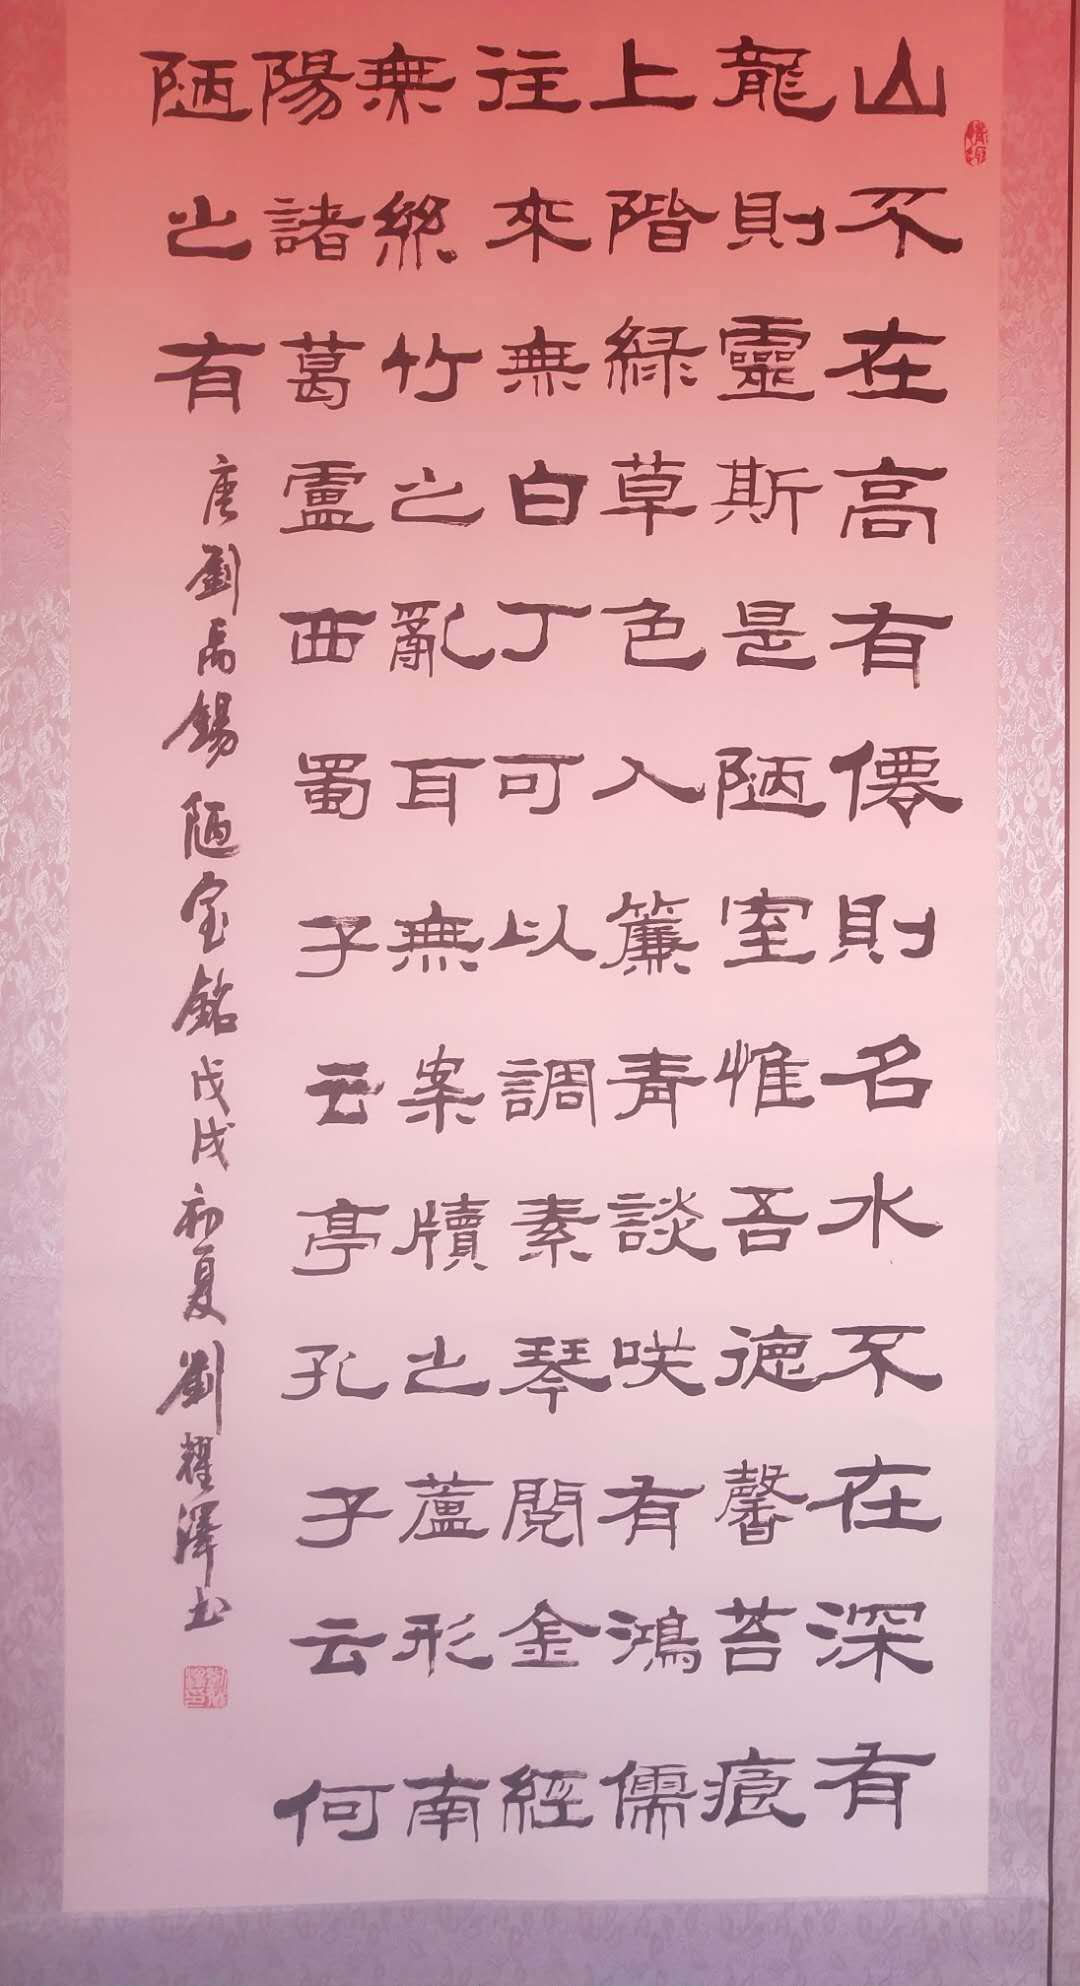 山不在高有僊則名水不在深有
龍則靈斯是陋室惟吾德馨苔痕
上階綠草色入簾青談咲有鴻儒
往來無白丁可以調素琴閱金經
無絲竹之亂耳無案牘之蘆形南
陽諸葛盧西蜀子云亭孔子云何
陋之有
唐劉禹錫陋室銘戊戌初夏劉耀澤书